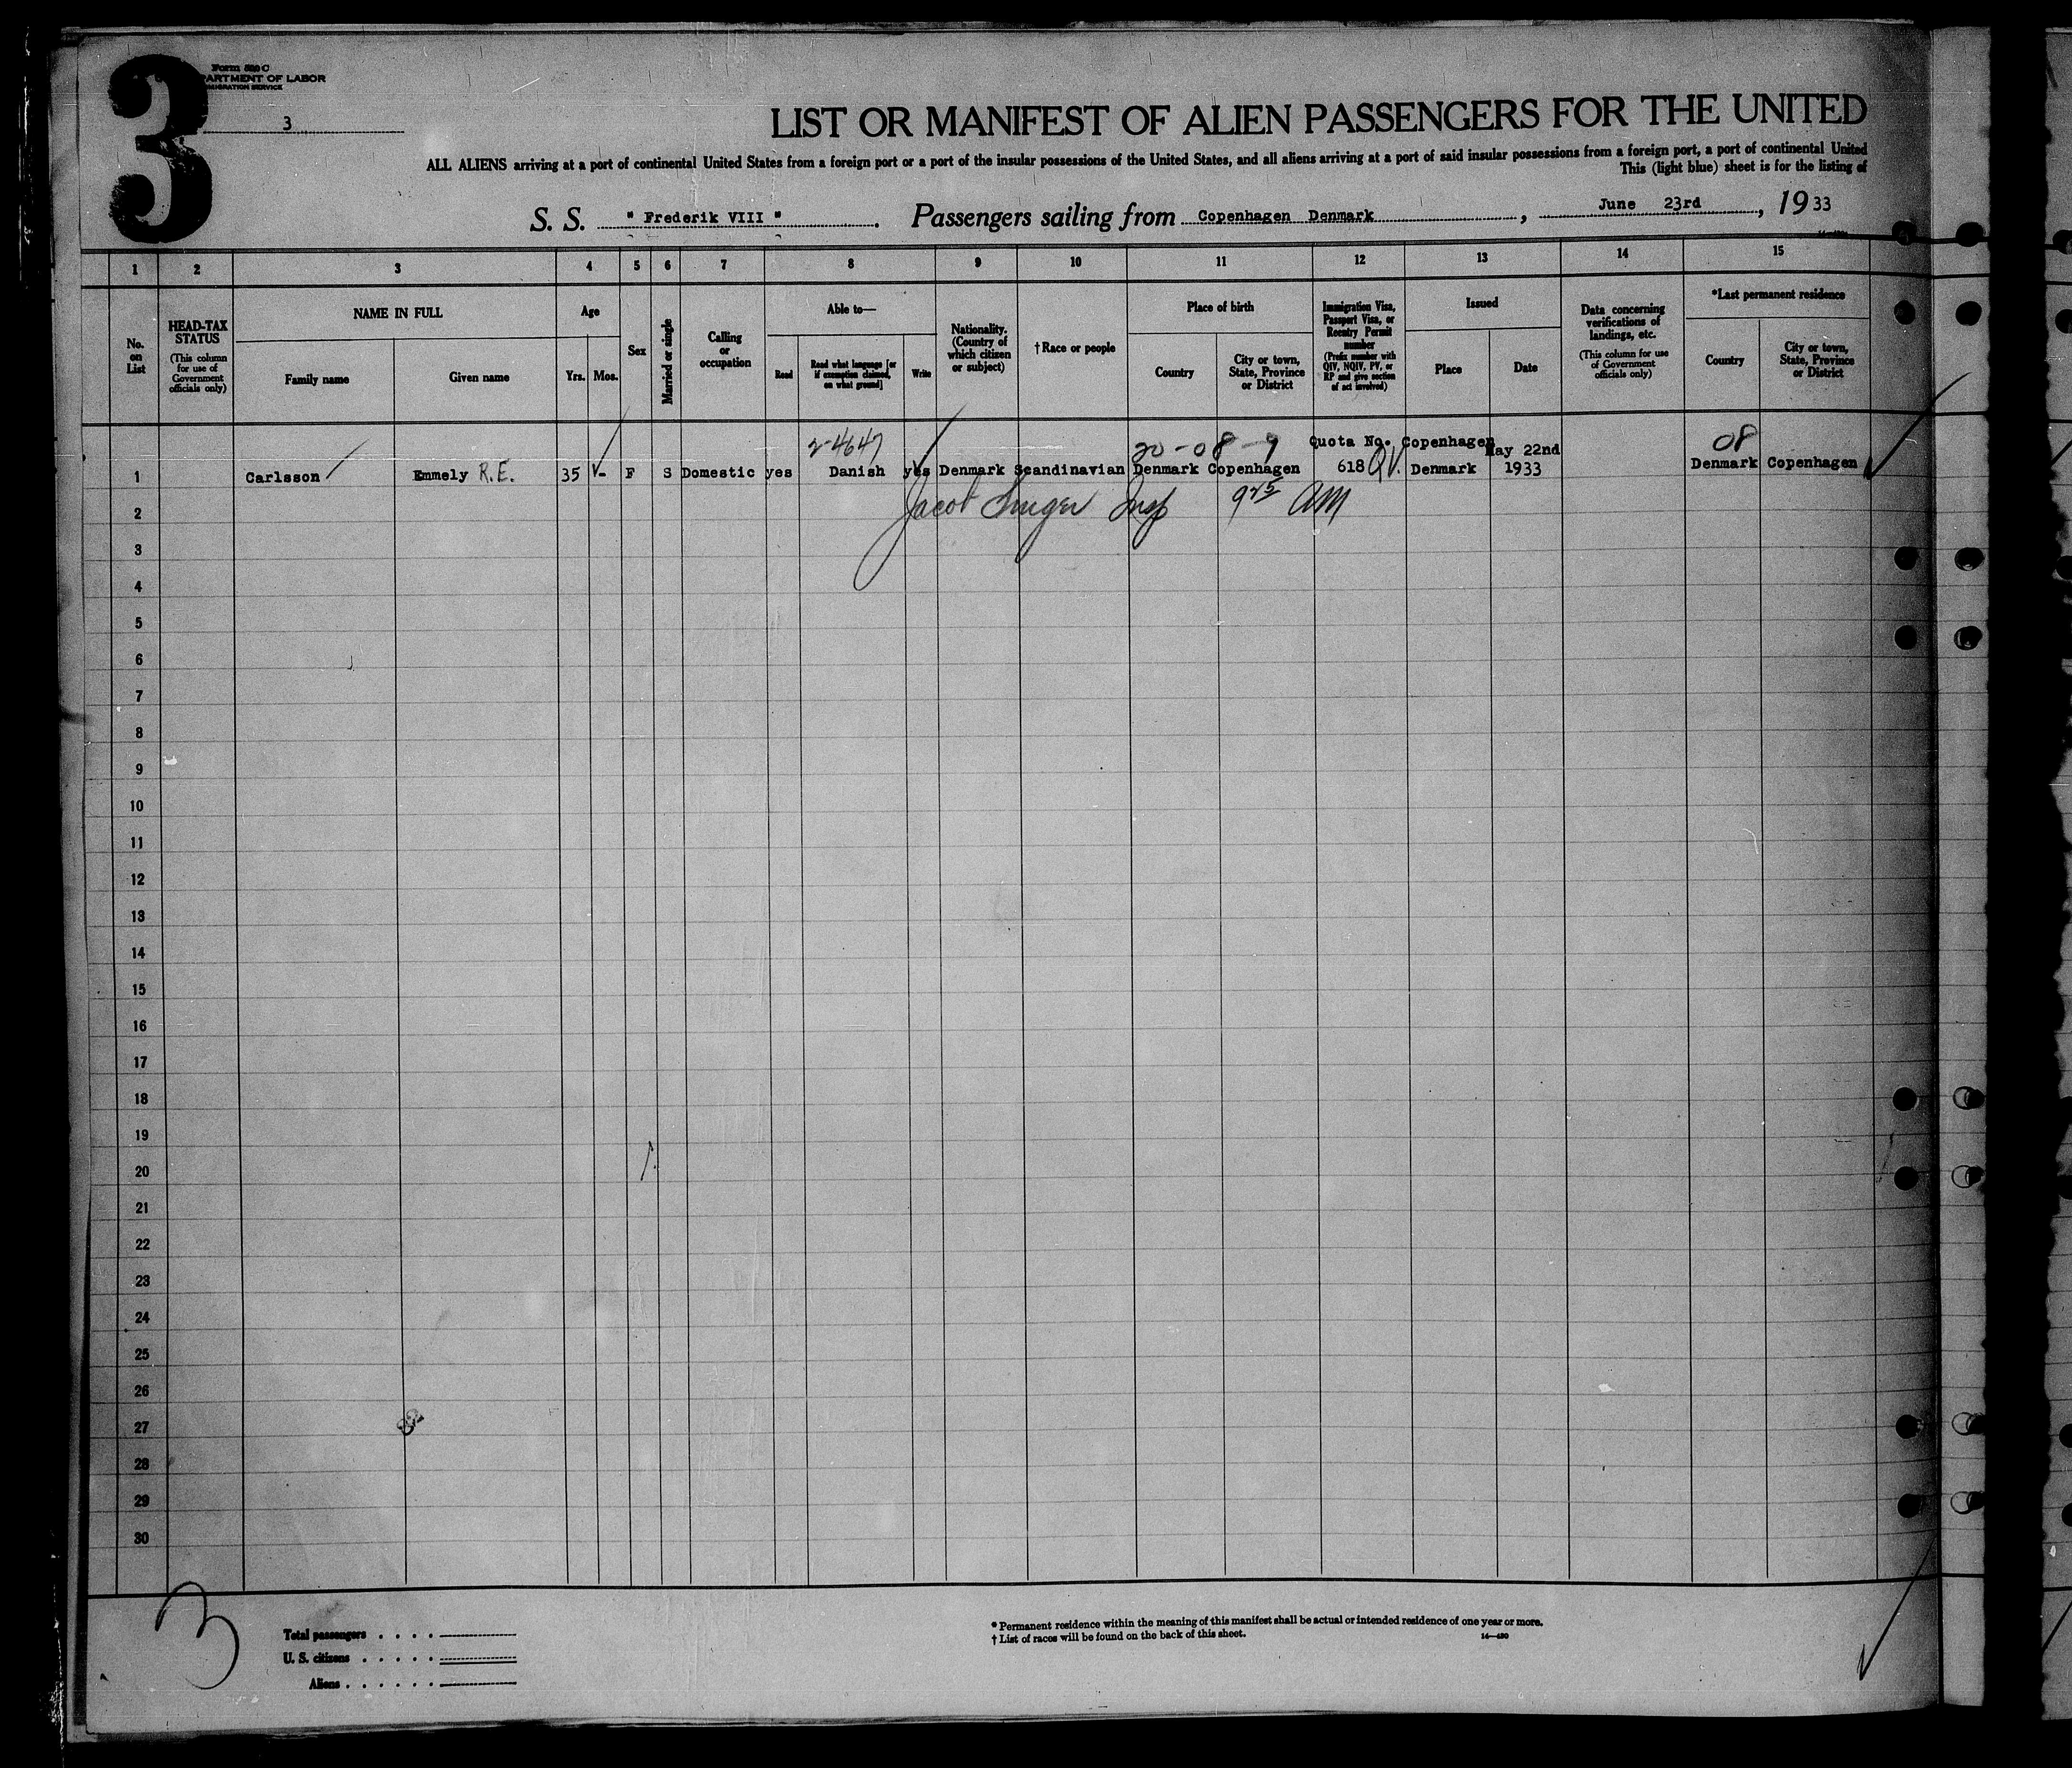 3
Form 500 C
DEPARTMENT OF LABOR
IMMIGRATION SERVICE
3
LIST OR MANIFEST OF ALIEN PASSENGERS FOR THE UNITED
ALL ALIENS arriving at a port of continental United States from a foreign port or a port of the insular possessions of the United States, and all aliens arriving at a port of said insular possessions from a foreign port, a port of continental United
This (light blue) sheet is for the listing of
S. S. " Frederik VIII ". Passengers sailing from Copenhagen Denmark, June 23rd, 1933
1 2 3 4 5 6 7 8 9 10 11 12 13 14 15
No. on List
HEAD-TAX STATUS
(This column for use of Government officials only)
NAME IN FULL
Family name
Given name
Age
Yrs. Mos.
Sex
Married or single
Calling or occupation
Able to—
Read
Read what language [or if exemption claimed, on what ground]
Write
Nationality. (Country of which citizen or subject)
†Race or people
Place of birth
Country
City or town, State, Province or District
Immigration Visa, Passport Visa, or Reentry Permit number
(Prefix number with QIV, NQIV, PV, or RP and give section of act involved)
Issued
Place
Date
Data concerning verifications of landings, etc.
(This column for use of Government officials only)
*Last permanent residence
Country
City or town, State, Province or District
2-4647 20-08-9 Quota No. Copenhagen May 22nd 08
1 Carlsson Emmely R.E. 35 - F S Domestic yes Danish yes Denmark Scandinavian Denmark Copenhagen 618 QV. Denmark 1933 Denmark Copenhagen
2 Jacob Insp 9 25 AM
3
4
5
6
7
8
9
10
11
12
13
14
15
16
17
18
19
20
21
22
23
24
25
26
27
28
29
30
3
Total passengers
U. S. citizens
Aliens
* Permanent residence within the meaning of this manifest shall be actual or intended residence of one year or more.
† List of races will be found on the back of this sheet.
14—430